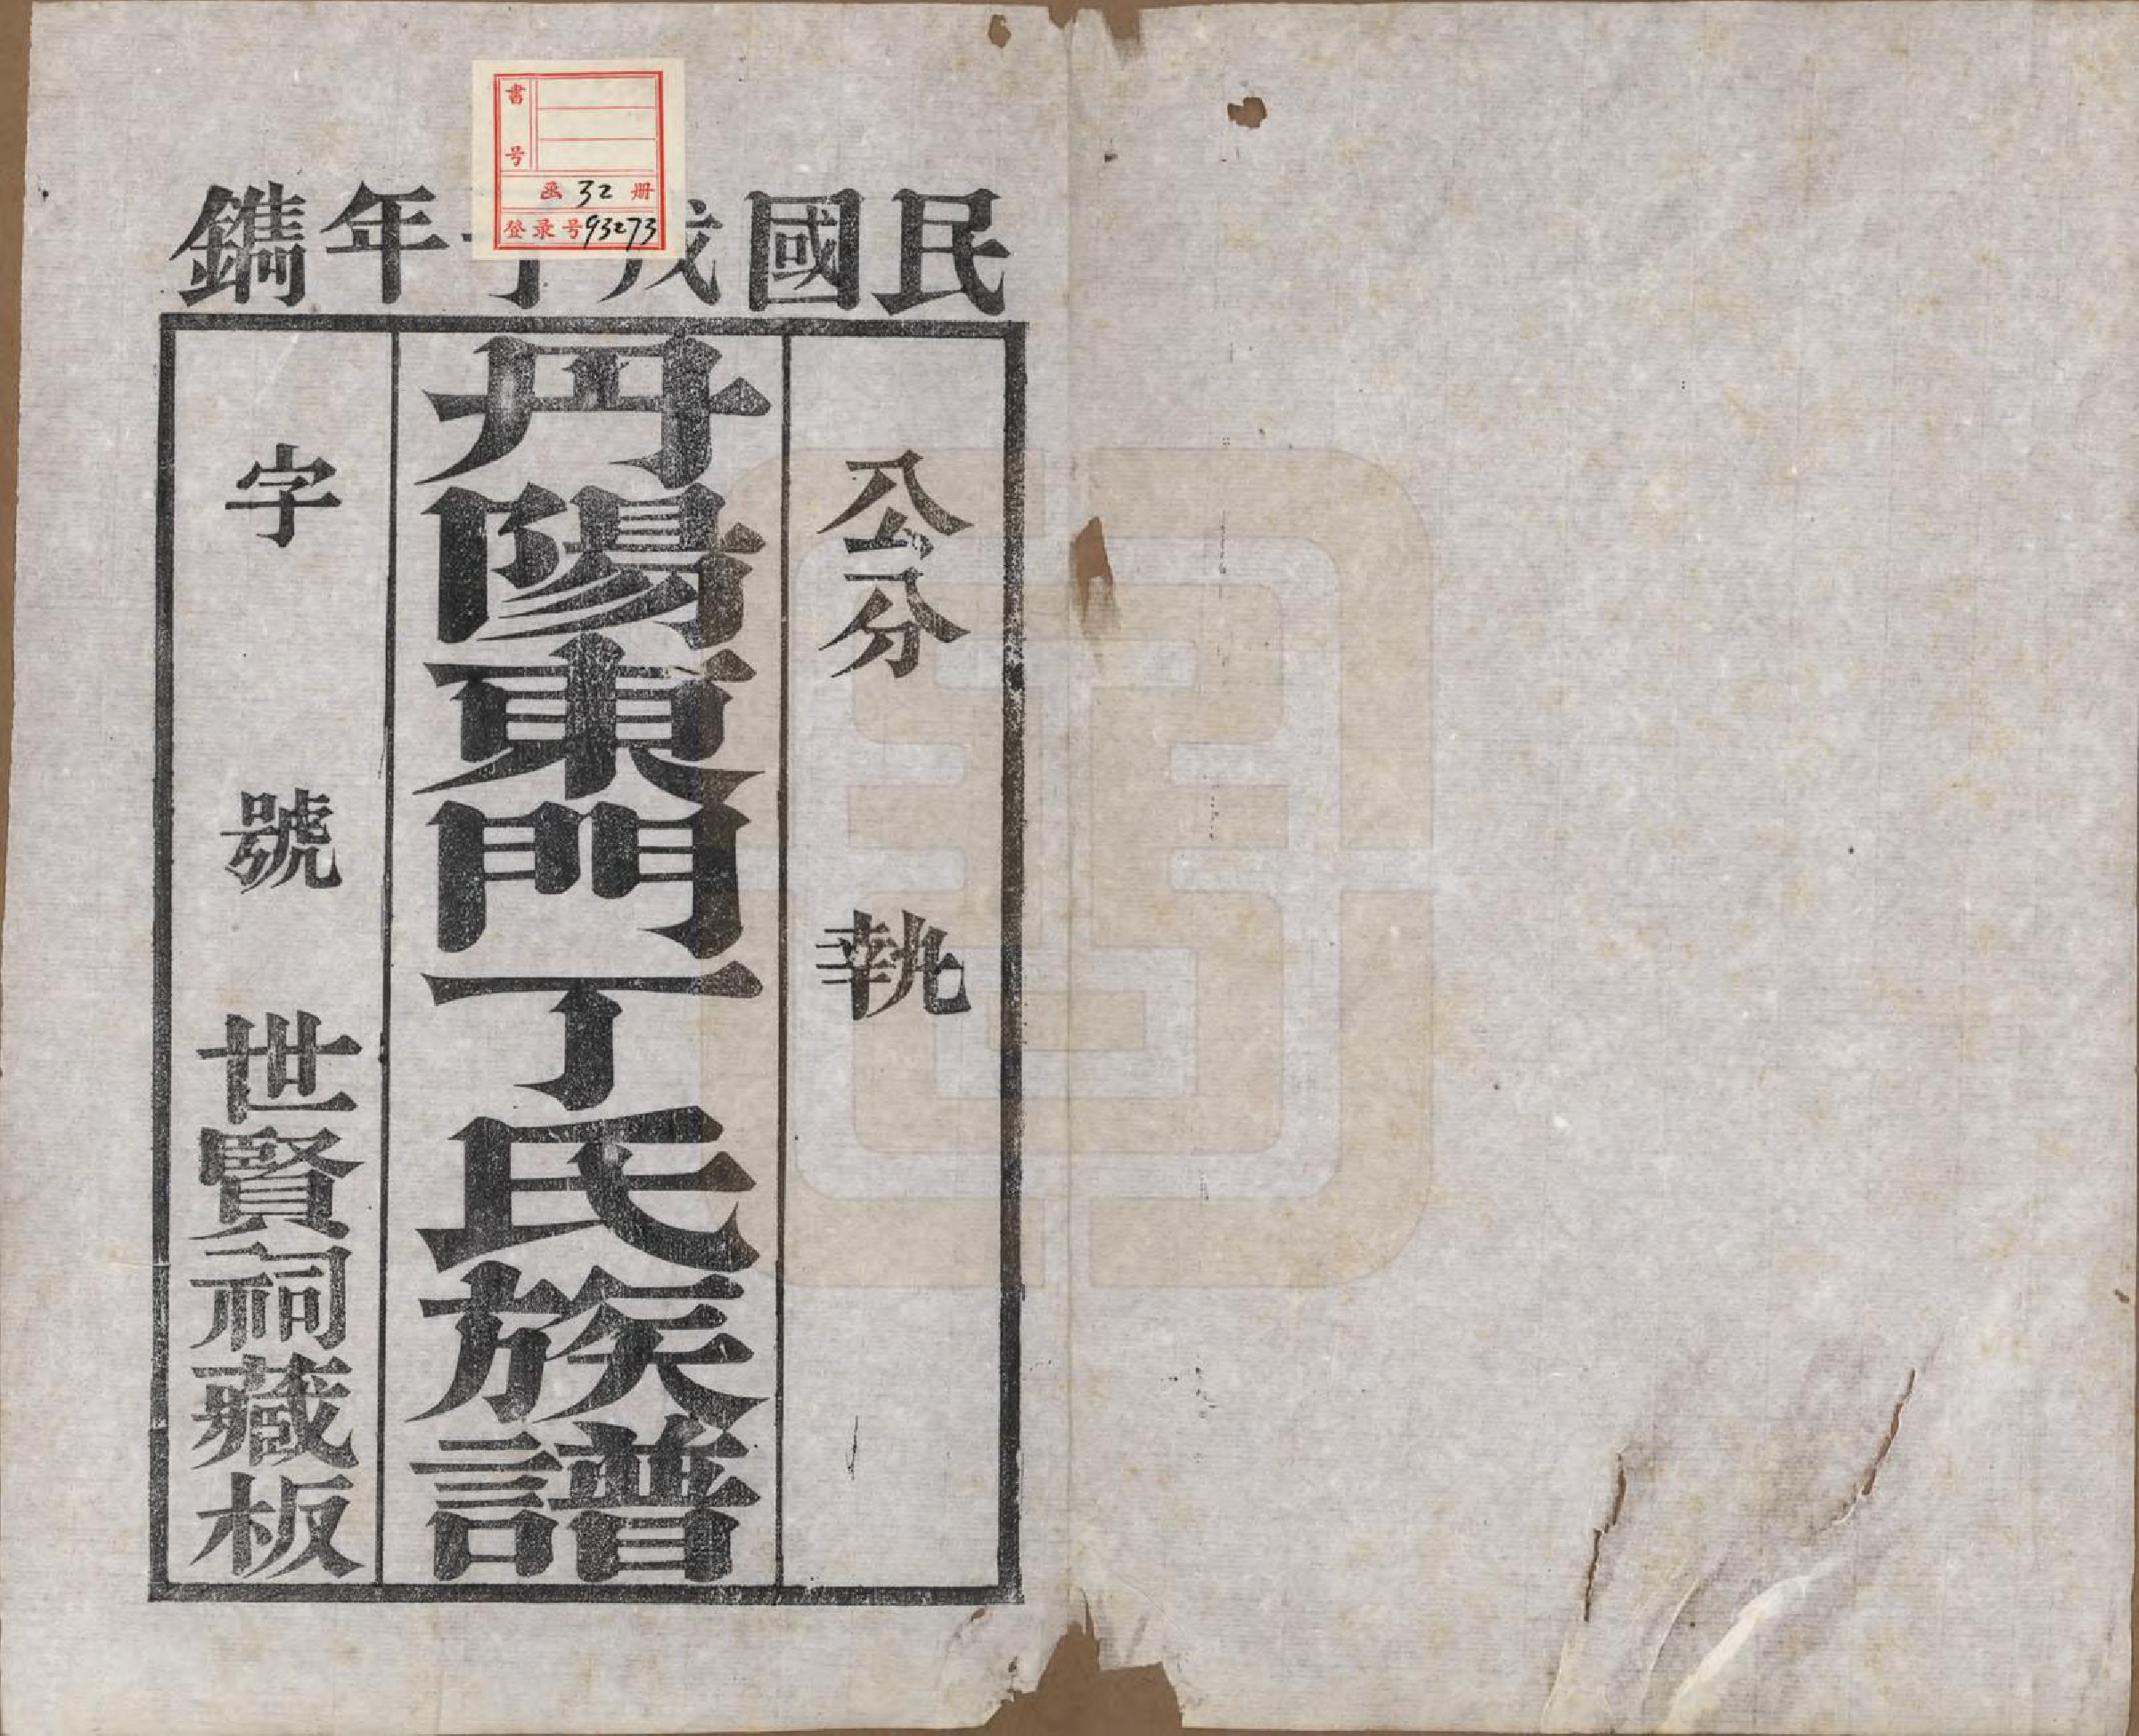 民國戊子年鐫
公分 執
丹陽東門丁氏族譜
字 號 世賢祠藏板
書号
函 32 册
登录号93273